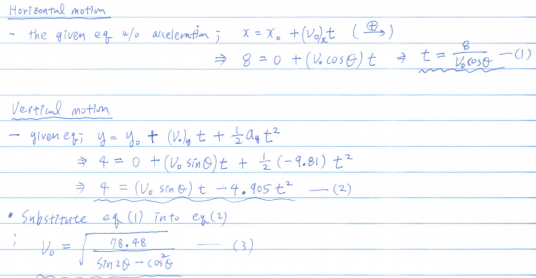 Horizontal motion
- the given eq w/o acceleration ; x = x₀ + (V₀)ₓt ( ⊕→ )
⇒ 8 = 0 + (V₀ cosθ) t ⇒ t = 8/(V₀ cosθ) —(1)
Vertical motion
- given eq ; y = y₀ + (V₀)ᵧ t + ½ aᵧ t²
⇒ 4 = 0 + (V₀ sinθ) t + ½ (-9.81) t²
⇒ 4 = (V₀ sinθ) t - 4.905 t² — (2)
• Substitute eq (1) into eq (2)
; V₀ = √(78.48/(sin2θ - cos²θ)) — (3)